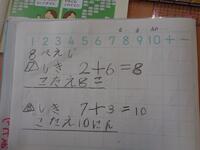 1 2 3 4 5 6 7 8 9 10 + −
8ぺえじ
② しき 2+6=8
こたえ8こ
④ しき 7+3=10
こたえ10にん